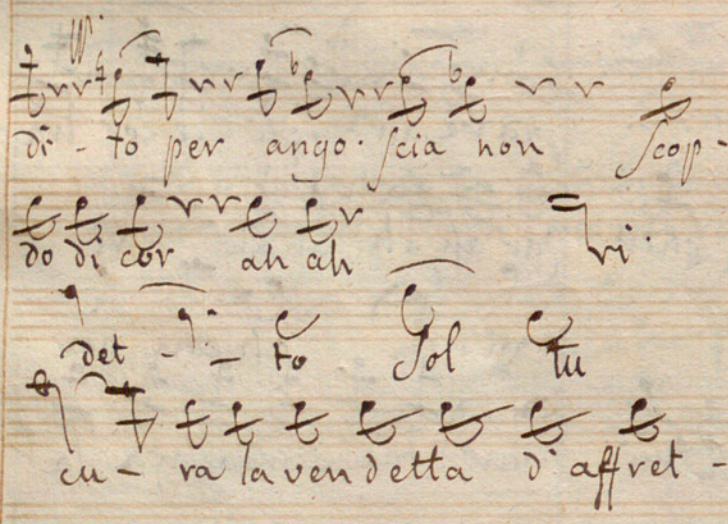 di - to per ango. scia non scop -
do di cor ah ah vi.
det - - to sol tu
cu - ra la vendetta d'affret -